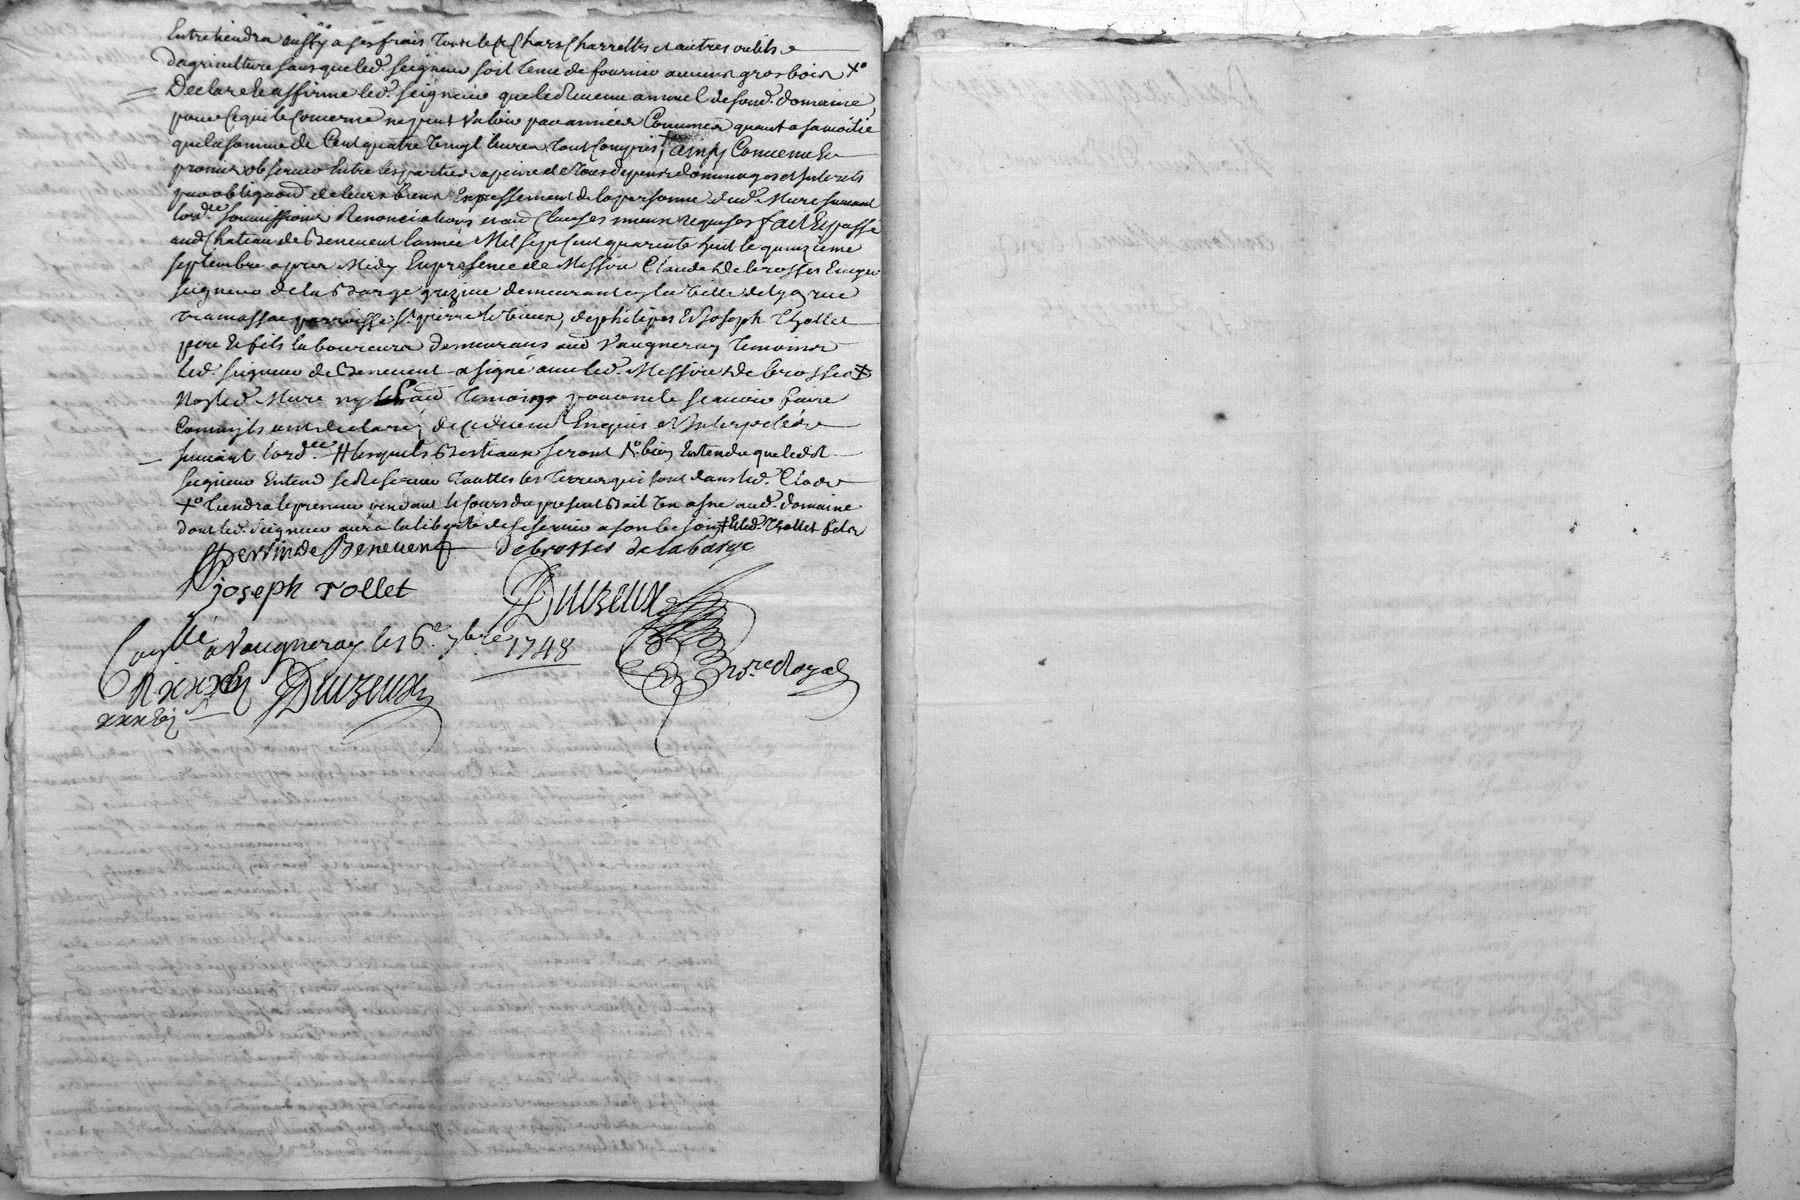 Entretiendra aussy a ses frais tous les Chars Charrettes et autres outils
d'agriculture sans que led. seigneur soit tenu de fournir aucuns gros bois x°
Declare et affirme led. seigneur que le Revenu annuel de sond. domaine
pour ce qui le concerne ne peut valoir par années Communes quant a sa moitié
que la somme de Cent quatre vingt livres tout Compris, ainsy Convenu Et
promis observer Entre les parties a peine de tous depens dommages et interets
par obligaon de leurs biens Expressement de la personne dud. Mure suivant
lord.ce soumissions Renonciations et aud Clauses mieux requises fait Et passé
aud Chateau de Benevent l'année Mil sept cent quarante huit le quinzieme
septembre apres Midy En presence de Messire Claude debrosses Ecuyer
seigneur de la Barge demeurant en la ville de Lyon rue
tramassac parroisse St pierre le vieux, de philipes Et Joseph thollet
pere Et fils laboureurs demeurans aud Vaugneray temoins
led. seigneur de Benevent a signé avec led. Messire debrosses ‡
Non led. Mure ny temoins pour ne le scavoir faire
Comm'ils ont declaré, de ce duement Enquis et Interpellés
suivant l'ord.ce # lesquels Bestiaux seront x° bien Entendu que ledit
seigneur Entend se Reserver touttes les terres qui sont dans led. Clos
x° tiendra le preneur pendant le Cours du present Bail un asne aud. domaine
dont led. seigneur aura la liberté de se servir a son besoin ‡ Et led. thollet fils
Perrin de Benevent debrosses de la barge
joseph tollet
Duizeux
n.re Royal
Con.llé a Vaugneray le 16.e 7bre 1748
R
Duizeux